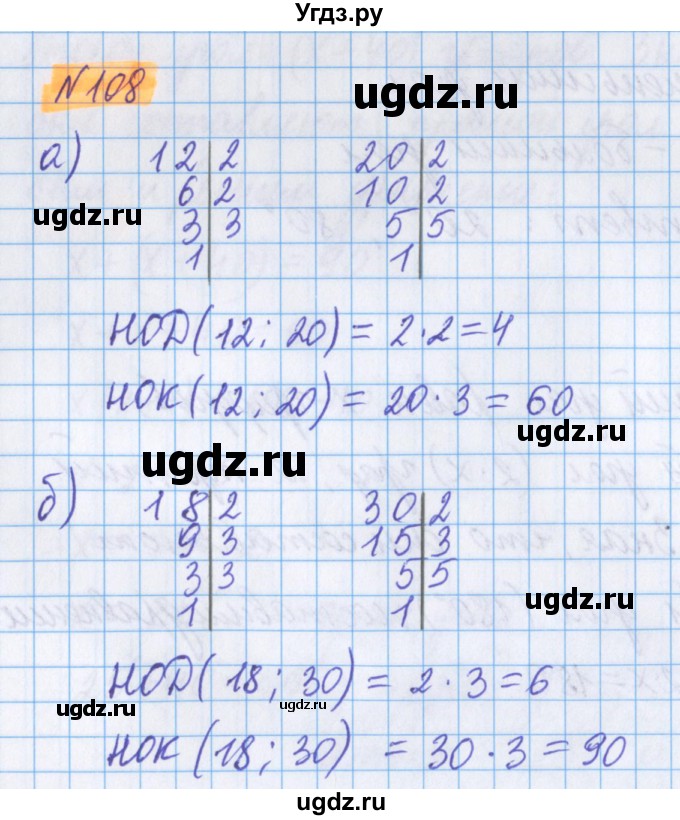 Угдз.ру
N 108
ugdz.ru
а) 12 | 2 20 | 2
6 | 2 10 | 2
ugdz.ru
3 | 3 5 | 5
1 | 1 |
НОД(12; 20) = 2·2 = 4
НОК(12; 20) = 20·3 = 60
ugdz.ru
ugdz.ru
б) 18 | 2 30 | 2
9 | 3 15 | 3
3 | 3 5 | 5
ugdz.ru
1 | 1 |
НОД(18; 30) = 2·3 = 6
ugdz.ru
ugdz.ru
НОК(18; 30) = 30·3 = 90
ugdz.ru
ugdz.ru